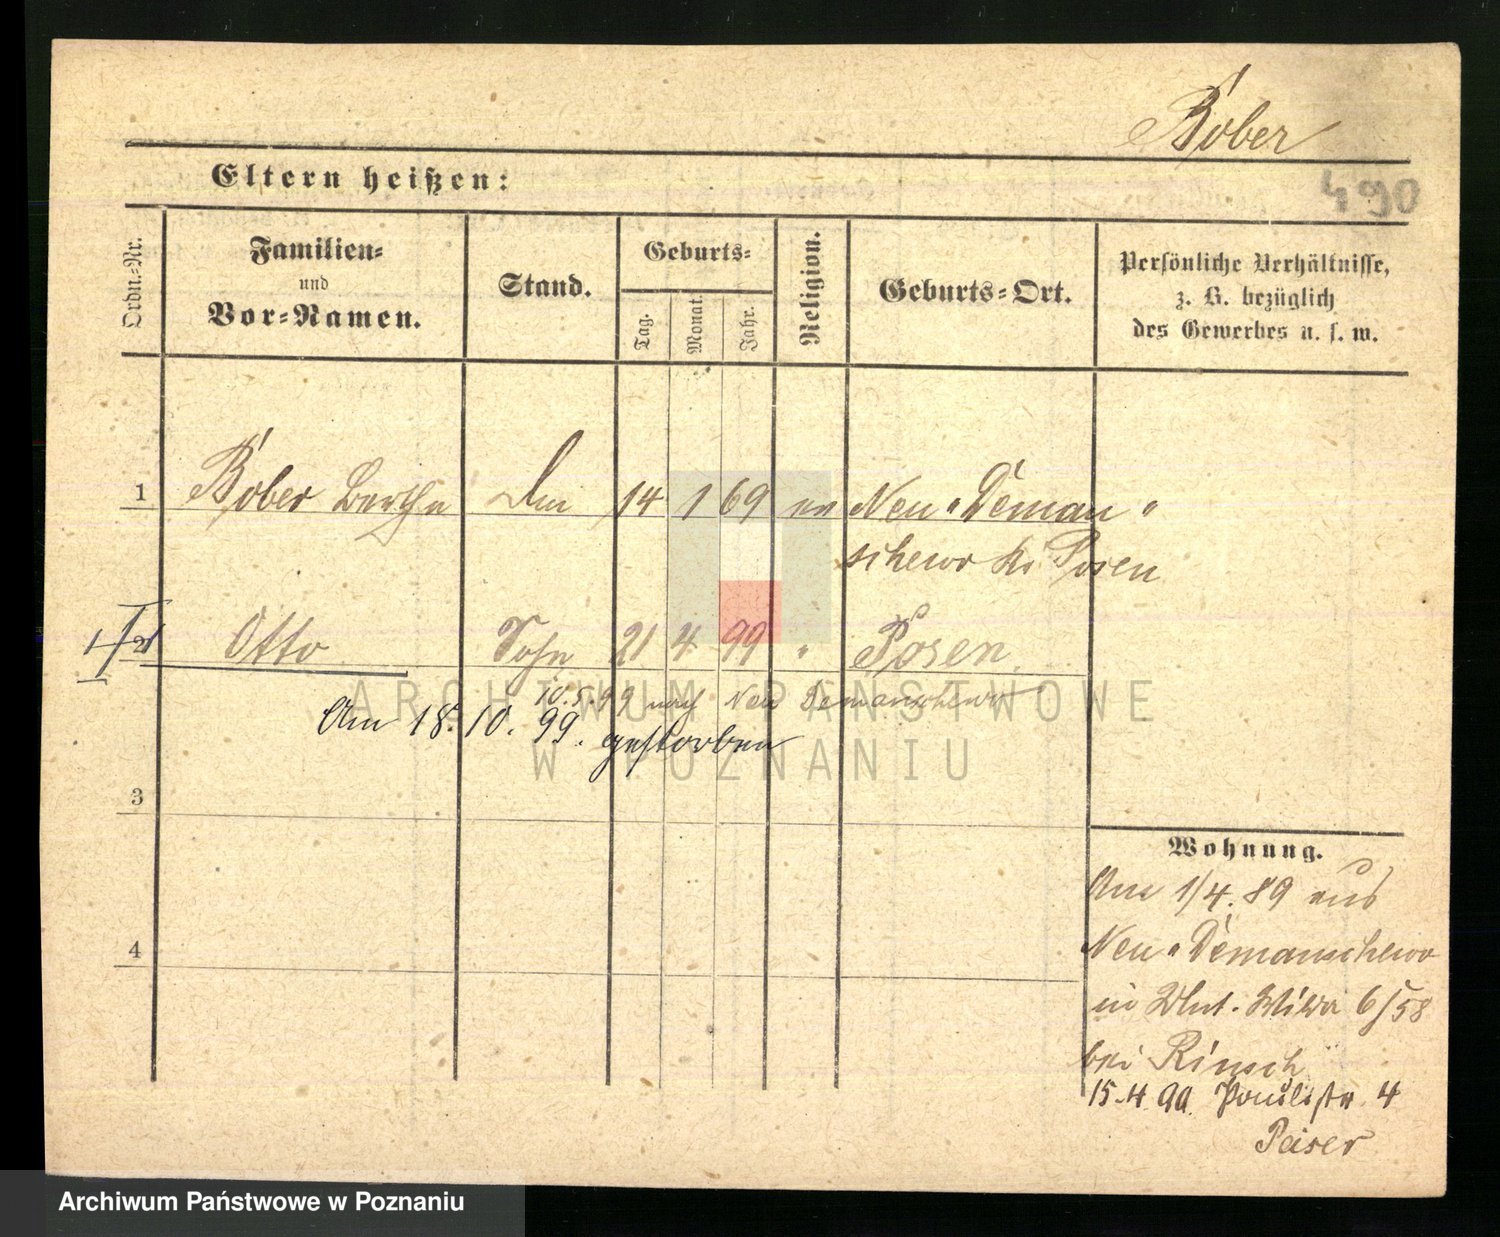 Bober
490
Eltern heißen:
Ordn.-Nr.
Familien-
und
Vor-Namen.
Stand.
Geburts-
Tag.
Monat.
Jahr.
Religion.
Geburts-Ort.
Persönliche Verhältnisse,
z. B. bezüglich
des Gewerbes u. s. w.
1 Bober Bertha 14 1 69 ev Neu "Deman"
schewo Kr Posen
2 Otto Sohn 21 4 99 " Posen
10.5.99 nach Neu Demanschewo
Am 18. 10. 99. gestorben
3
4
Wohnung.
Am 1/4. 89 aus
Neu "Demanschewo
in Unt. Wilda 6/58
bei Rinsch
15.4.99. Paulistr. 4
Peiser
ARCHIWUM PAŃSTWOWE
W POZNANIU
Archiwum Państwowe w Poznaniu